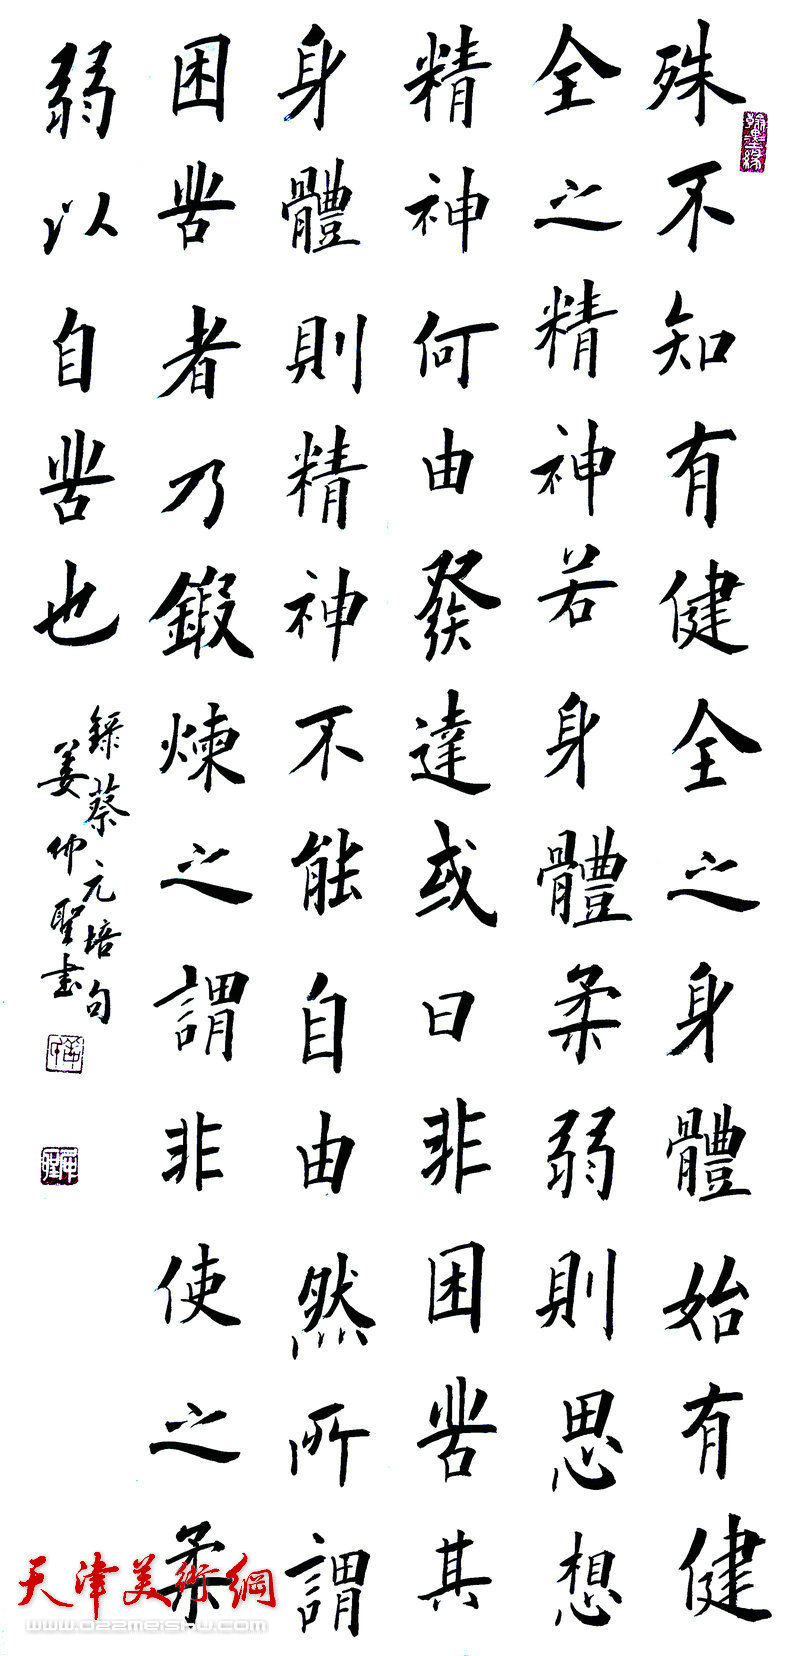 殊不知有健全之身體始有健
全之精神若身體柔弱則思想
精神何由發達或曰非困苦其
身體則精神不能自由然所謂
困苦者乃鍛煉之謂非使之柔
弱以自苦也
錄蔡元培句
姜仲聖書
天津美術網
www.022meishu.com